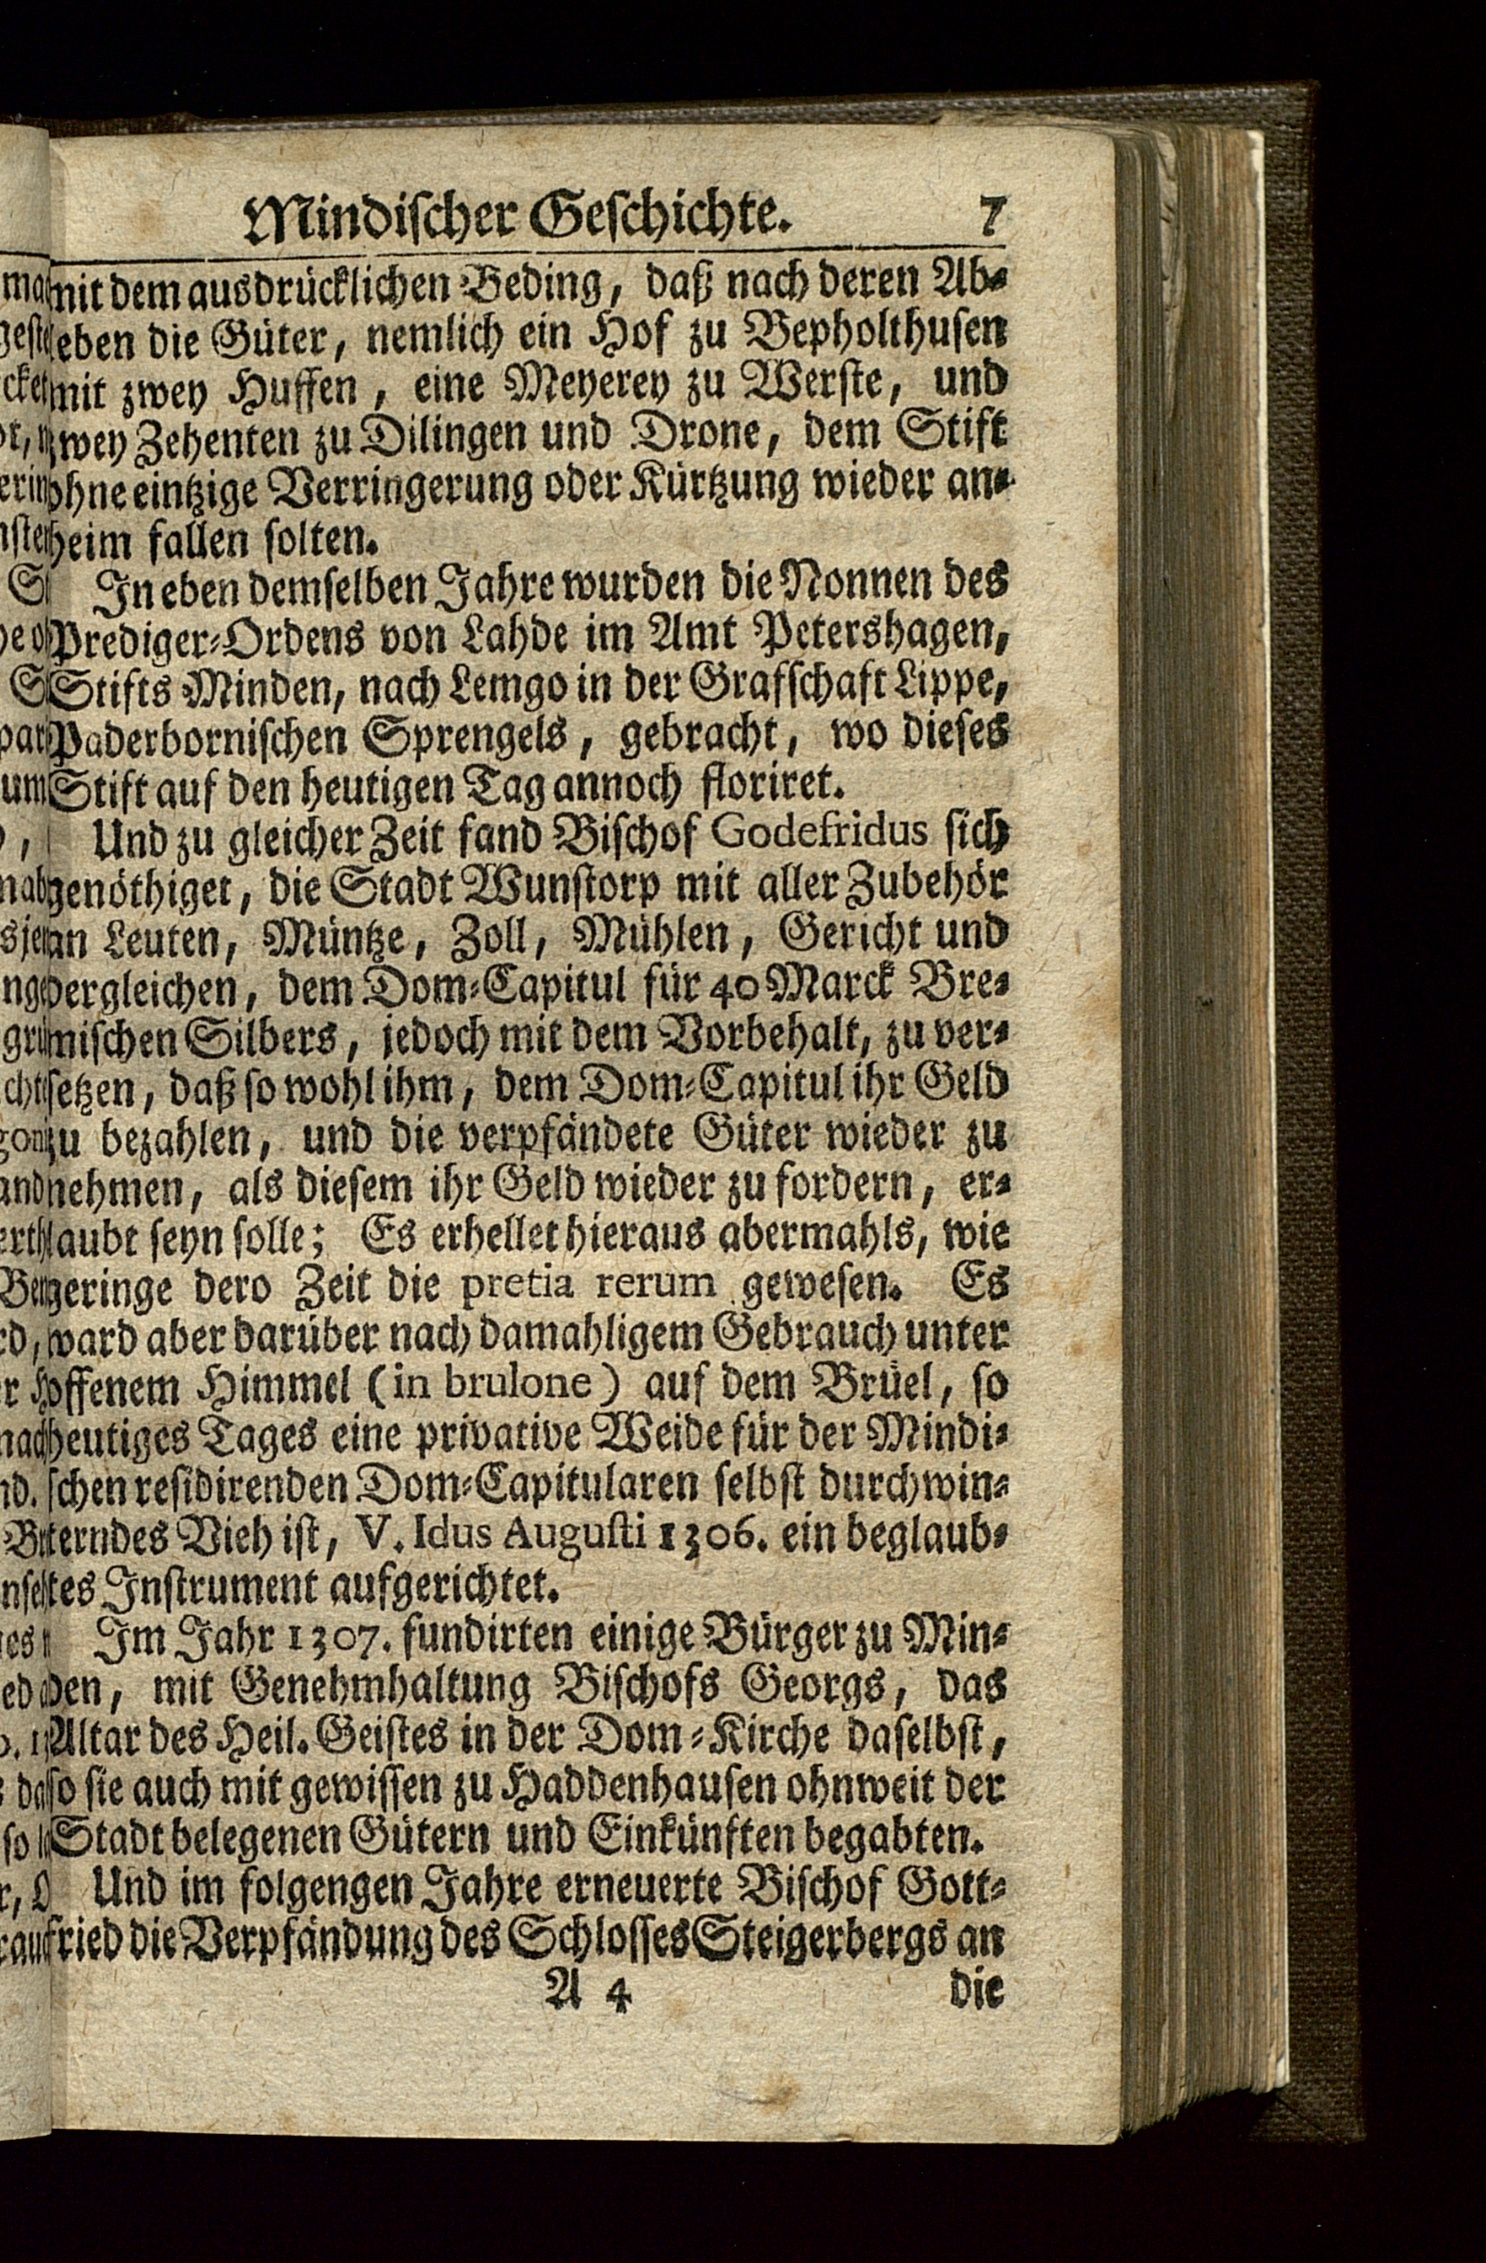 Mindischer Geschichte. 7
mit dem ausdrücklichen Beding, daß nach deren Ab-
leben die Güter, nemlich ein Hof zu Bepholthusen
mit zwey Huffen, eine Meyerey zu Werste, und
zwey Zehenten zu Dilingen und Drone, dem Stift
ohne eintzige Verringerung oder Kürtzung wieder an-
heim fallen solten.
In eben demselben Jahre wurden die Nonnen des
Prediger-Ordens von Lahde im Amt Petershagen,
Stifts Minden, nach Lemgo in der Grafschaft Lippe,
Paderbornischen Sprengels, gebracht, wo dieses
Stift auf den heutigen Tag annoch floriret.
Und zu gleicher Zeit fand Bischof Godefridus sich
genöthiget, die Stadt Wunstorp mit aller Zubehör
an Leuten, Müntze, Zoll, Mühlen, Gericht und
dergleichen, dem Dom-Capitul für 40 Marck Bre-
mischen Silbers, jedoch mit dem Vorbehalt, zu ver-
setzen, daß so wohl ihm, dem Dom-Capitul ihr Geld
zu bezahlen, und die verpfändete Güter wieder zu
nehmen, als diesem ihr Geld wieder zu fordern, er-
laubt seyn solle; Es erhellet hieraus abermahls, wie
geringe dero Zeit die pretia rerum gewesen. Es
ward aber darüber nach damahligem Gebrauch unter
offenem Himmel (in brulone) auf dem Brüel, so
heutiges Tages eine privative Weide für der Mindi-
schen residirenden Dom-Capitularen selbst durchwin-
terndes Vieh ist, V. Idus Augusti 1306. ein beglaub-
tes Instrument aufgerichtet.
Im Jahr 1307. fundirten einige Bürger zu Min-
den, mit Genehmhaltung Bischofs Georgs, das
Altar des Heil. Geistes in der Dom-Kirche daselbst,
so sie auch mit gewissen zu Haddenhausen ohnweit der
Stadt belegenen Gütern und Einkünften begabten.
Und im folgengen Jahre erneuerte Bischof Gott-
fried die Verpfändung des Schlosses Steigerbergs an
A 4 die